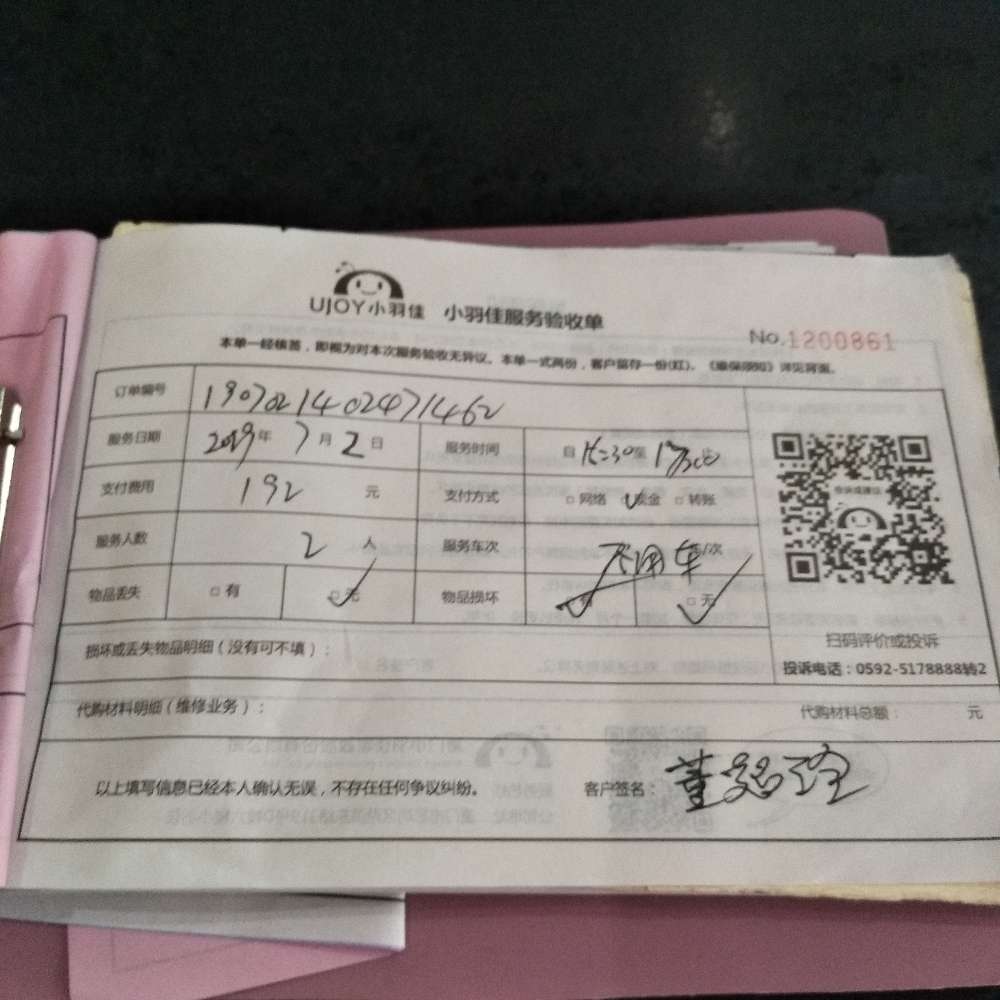 UJOY小羽佳 小羽佳服务验收单
No.1200861
本单一经核签，即视为对本次服务验收无异议。本单一式两份，客户留存一份(红)。《维保须知》详见背面。
订单编号 1907021402471462
服务日期 2019年 7月2日 服务时间 自 至
支付费用 192 元 支付方式 □网络 现金 □转账
服务人数 2 人 服务车次 不用车 /次
物品丢失 □有 □无 物品损坏 有 □无
扫码评价或投诉
投诉电话：0592-5178888转2
损坏或丢失物品明细（没有可不填）：
代购材料明细（维修业务）： 代购材料总额： 元
以上填写信息已经本人确认无误，不存在任何争议纠纷。 客户签名：董